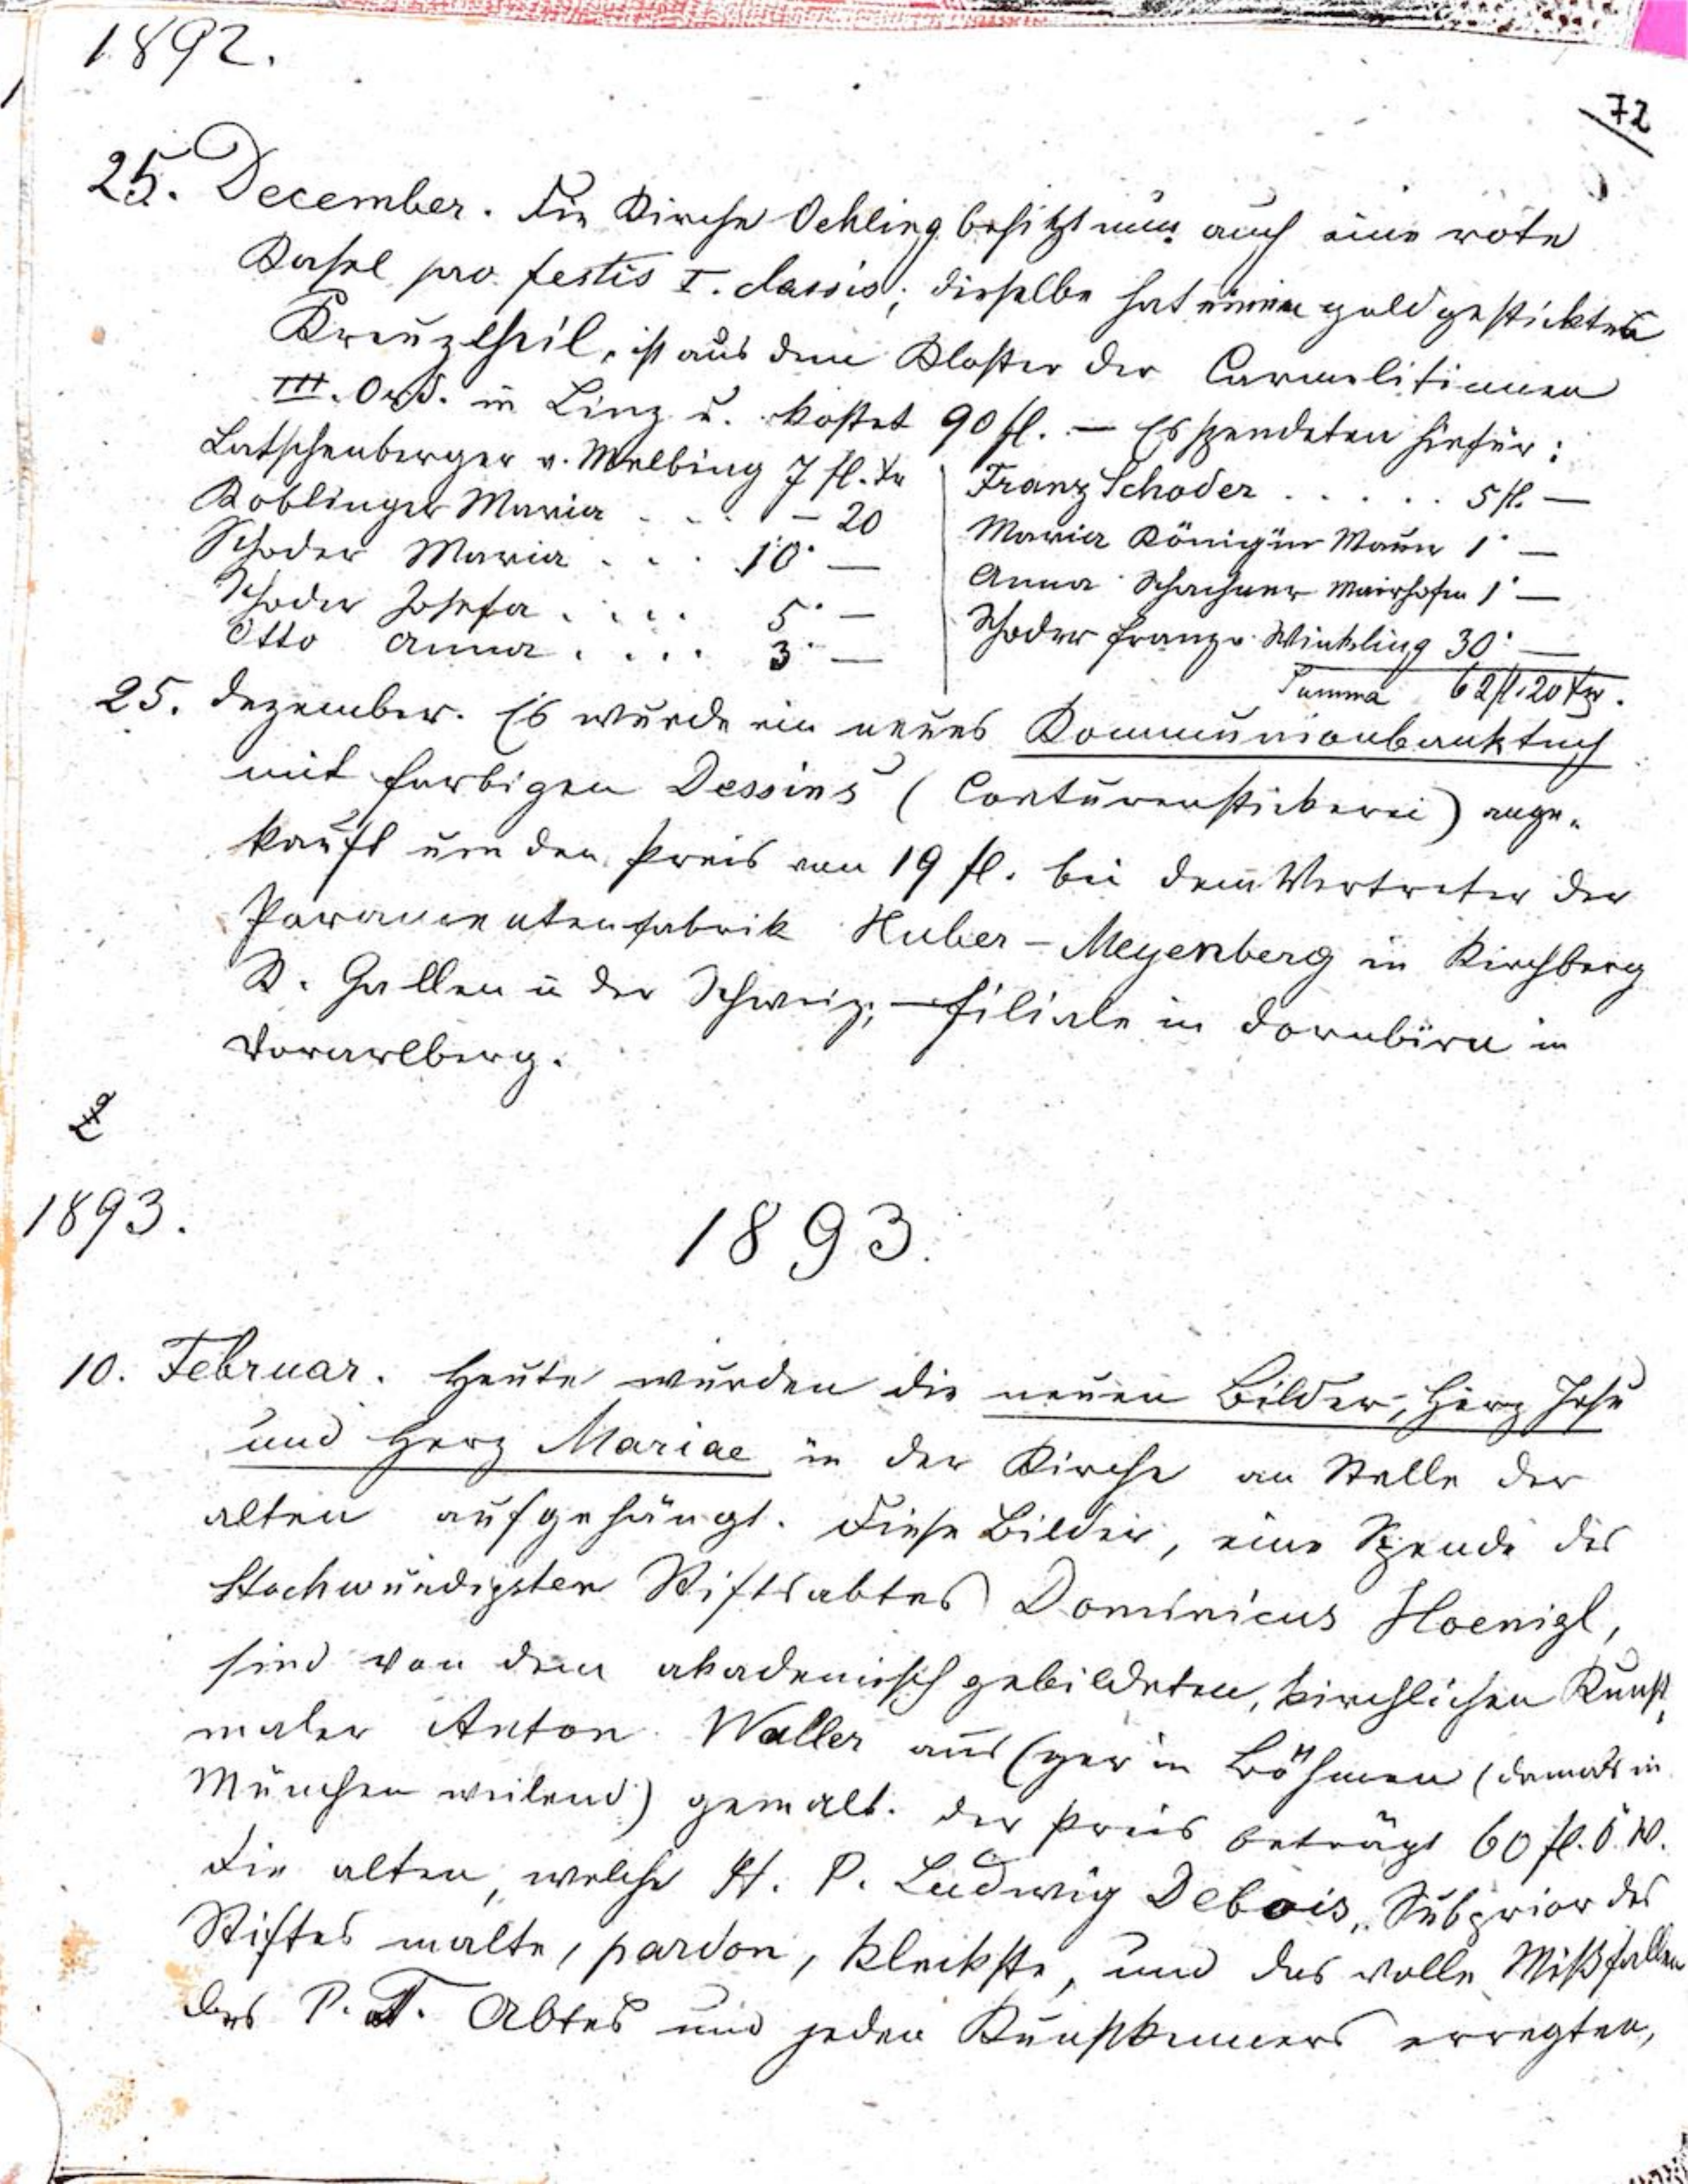 1892.
72
25. December. Die Kirche Oehling besitzt nun auch eine rote
Kasel pro festis I. classis; dieselbe hat einen goldgestickten
Kreuztheil, ist aus dem Kloster der Carmelitinnen
III. Ord. in Linz u. kostet 90 fl. — Es spendeten hiefür:
Latschenberger v. Melbing 7 fl. kr
Koblinger Maria . . . – 20
Schoder Maria . . . 10 · —
Schoder Josefa . . . . 5 · —
Otto Anna . . . . 3 · —
Franz Schoder . . . . . 5 fl. —
Maria Königin Maur 1 · —
Anna Schachner Mairhofen 1 · —
Schoder Franz v. Winkling 30 · —
Summa 62 fl. 20 kr.
25. Dezember. Es wurde ein neues Kommunionbanktuch
mit farbigen Dessins (Conturenstickerei) ange-
kauft um den Preis von 19 fl. bei dem Vertreter der
Paramentenfabrik Huber – Meyenberg in Kirchberg
St. Gallen in der Schweiz; — Filiale in Dornbirn in
Vorarlberg.
1893.
1893.
10. Februar. Heute wurden die neuen Bilder, Herz Jesu
und Herz Mariae in der Kirche an Stelle der
alten aufgehängt. Diese Bilder, eine Spende des
Hochwürdigsten Stiftsabtes Dominicus Hoenigl,
sind von dem akademisch gebildeten, kirchlichen Kunst-
maler Anton Waller aus Eger in Böhmen (damals in
München weilend) gemalt. Der Preis beträgt 60 fl. Ö. W.
Die alten, welche H. P. Ludwig Debois, Subprior des
Stiftes malte, pardon, kleckste, und das volle Mißfallen
des P. T. Abtes und jeden Kunstkenners erregten,